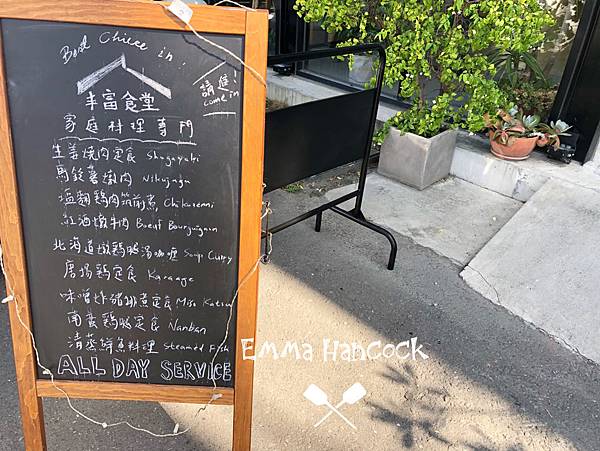 Best Choice in!
請進!
come in
丰富食堂
家庭料理專門
生姜燒肉定食 Shogayaki
馬鈴薯燉肉 Nikujaga
塩麴鷄肉筑前煮 Chikuzenni
紅酒燉牛肉 Boeuf Bourguignon
北海道燉鷄腿湯咖喱 Soup Curry
唐揚鷄定食 Karaage
味噌炸豬排煮定食 Miso Katsu
南蛮鷄腿定食 Nanban
清蒸鮮魚料理 Steamed Fish
ALL DAY SERVICE
Emma Hancock